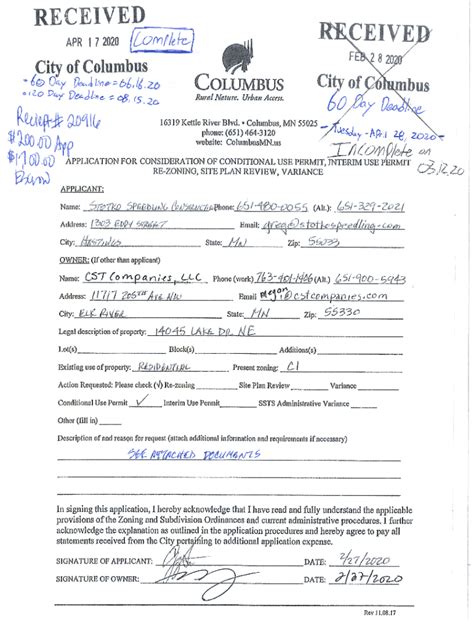 RECEIVED
APR 17 2020
Complete
City of Columbus
- 60 Day Deadline = 06.16.20
- 120 Day Deadline = 08.15.20
Receipt# 209116
$200.00 App
$1,700.00
Escrow
COLUMBUS
Rural Nature. Urban Access.
RECEIVED
FEB 28 2020
City of Columbus
60 Day Deadline
- Tuesday - April 28, 2020 -
INComplete on
03.12.20
16319 Kettle River Blvd. • Columbus, MN 55025
phone: (651) 464-3120
website: ColumbusMN.us
APPLICATION FOR CONSIDERATION OF CONDITIONAL USE PERMIT, INTERIM USE PERMIT
RE-ZONING, SITE PLAN REVIEW, VARIANCE
APPLICANT:
Name: STOTKO SPEEDLING CONSTRUCTION Phone: 651-480-0055 (Alt.) 651-329-2021
Address: 1303 EDDY STREET Email: greg@stotkospeedling.com
City: HASTINGS State: MN Zip: 55033
OWNER: (If other than applicant)
Name: CST Companies, LLC Phone (work) 763-401-1406 (Alt.) 651-900-5943
Address: 11717 205th Ave NW Email megan@cstcompanies.com
City: ELK RIVER State: MN Zip: 55330
Legal description of property: 14045 LAKE DR. NE
Lot(s) Block(s) Additions(s)
Existing use of property: RESIDENTIAL Present zoning: C1
Action Requested: Please check (√) Re-zoning Site Plan Review Variance
Conditional Use Permit √ Interim Use Permit SSTS Administrative Variance
Other (fill in)
Description of and reason for request (attach additional information and requirements if accessary)
SEE ATTACHED DOCUMENTS
In signing this application, I hereby acknowledge that I have read and fully understand the applicable
provisions of the Zoning and Subdivision Ordinances and current administrative procedures. I further
acknowledge the explanation as outlined in the application procedures and hereby agree to pay all
statements received from the City pertaining to additional application expense.
SIGNATURE OF APPLICANT: DATE: 2/27/2020
SIGNATURE OF OWNER: DATE: 2/27/2020
Rev 11.08.17